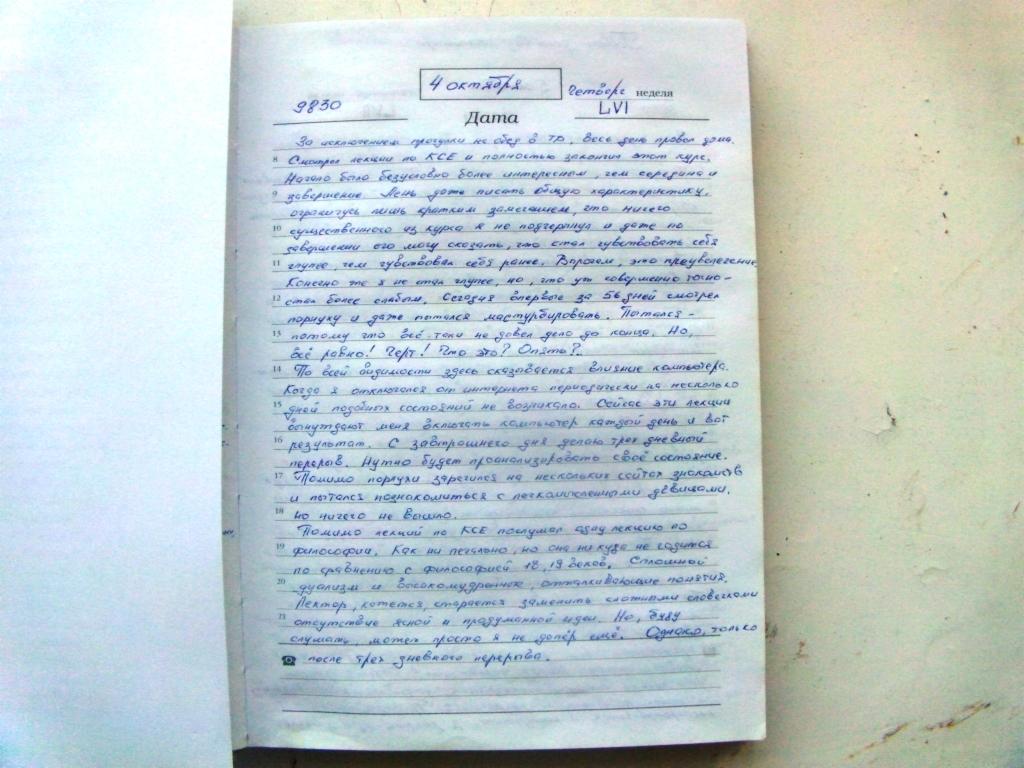 4 октября
Четверг неделя
9830
LVI
Дата
За исключением прогулки на обед в ТД. Весь день провёл дома.
8 Смотрел лекции по КСЕ и полностью закончил этот курс.
Начало было безусловно более интересным, чем середина и
9 завершение. Лень даже писать общую характеристику,
ограничусь лишь кратким замечанием, что ничего
10 существенного из курса я не подчерпнул и даже по
завершении его могу сказать, что стал чувствовать себя
11 глупее, чем чувствовал себя ранее. Впрочем, это преувеличение.
Конечно же я не стал глупее, но, что уж совершенно точно -
12 стал более слабым. Сегодня впервые за 56 дней смотрел
порнуху и даже пытался мастурбировать. Пытался -
13 потому что всё-таки не довел дело до конца. Но,
всё равно! Чёрт! Что это? Опять?..
14 По всей видимости здесь сказывается влияние компьютера.
Когда я отключался от интернета периодически на несколько
15 дней подобных состояний не возникало. Сейчас эти лекции
вынуждают меня включать компьютер каждый день и вот
16 результат. С завтрашнего дня делаю трех дневный
перерыв. Нужно будет проанализировать своё состояние.
17 Помимо порнухи зарегился на нескольких сайтах знакомств
и пытался познакомиться с легкомысленными девицами,
18 но ничего не вышло.
Помимо лекций по КСЕ послушал одну лекцию по
19 философии. Как ни печально, но она никуда не годится
по сравнению с философией 18, 19 веков. Сплошной
20 дуализм и высокомудренные, отталкивающие понятия.
Лектор, кажется, старается заменить сложными словечками
21 отсутствие ясной и продуманной идеи. Но, буду
слушать, может просто я не допёр ещё. Однако, только
после трех дневного перерыва.